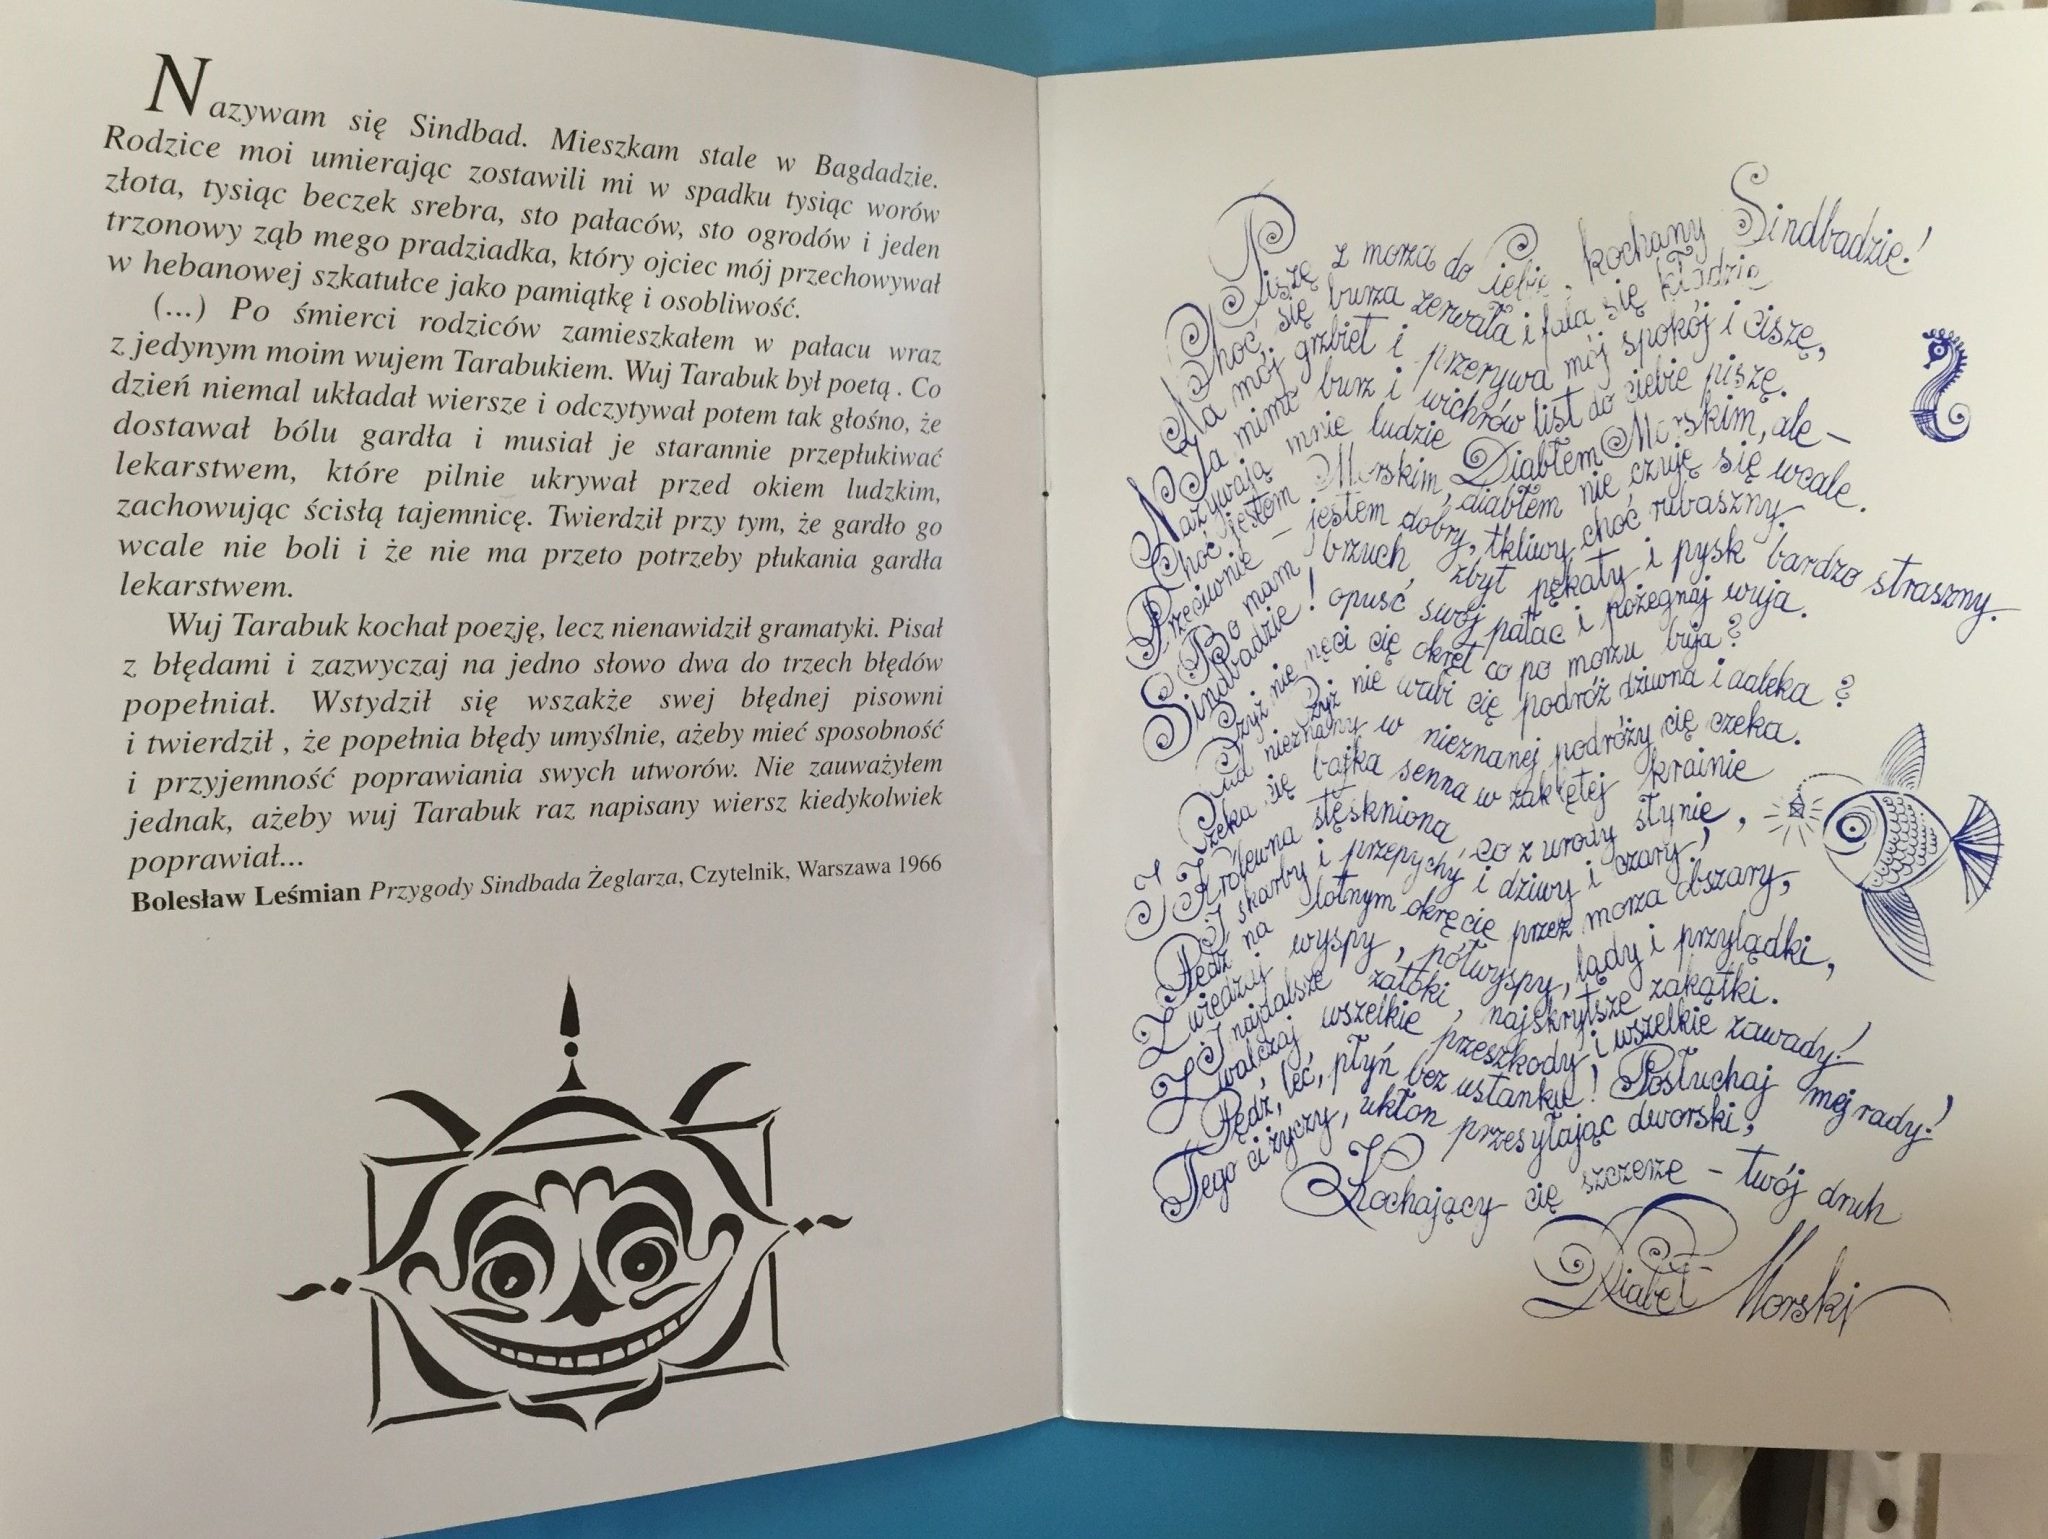 Nazywam się Sindbad. Mieszkam stale w Bagdadzie.
Rodzice moi umierając zostawili mi w spadku tysiąc worów
złota, tysiąc beczek srebra, sto pałaców, sto ogrodów i jeden
trzonowy ząb mego pradziadka, który ojciec mój przechowywał
w hebanowej szkatułce jako pamiątkę i osobliwość.
(...) Po śmierci rodziców zamieszkałem w pałacu wraz
z jedynym moim wujem Tarabukiem. Wuj Tarabuk był poetą . Co
dzień niemal układał wiersze i odczytywał potem tak głośno, że
dostawał bólu gardła i musiał je starannie przepłukiwać
lekarstwem, które pilnie ukrywał przed okiem ludzkim,
zachowując ścisłą tajemnicę. Twierdził przy tym, że gardło go
wcale nie boli i że nie ma przeto potrzeby płukania gardła
lekarstwem.
Wuj Tarabuk kochał poezję, lecz nienawidził gramatyki. Pisał
z błędami i zazwyczaj na jedno słowo dwa do trzech błędów
popełniał. Wstydził się wszakże swej błędnej pisowni
i twierdził , że popełnia błędy umyślnie, ażeby mieć sposobność
i przyjemność poprawiania swych utworów. Nie zauważyłem
jednak, ażeby wuj Tarabuk raz napisany wiersz kiedykolwiek
poprawiał...
Bolesław Leśmian Przygody Sindbada Żeglarza, Czytelnik, Warszawa 1966
Piszę z morza do Ciebie, kochany Sindbadzie!
Choć się burza zerwała i fala się kładzie
Na mój grzbiet i przerywa mój spokój i ciszę,
Ja mimo burz i wichrów list do ciebie piszę.
Nazywają mnie ludzie Diabłem Morskim, ale –
Choć jestem Morskim, diabłem nie czuję się wcale.
Przeciwnie – jestem dobry, tkliwy choć rubaszny.
Bo mam brzuch zbyt pękaty i pysk bardzo straszny.
Sindbadzie! opuść swój pałac i pożegnaj wuja.
Czyż nie nęci cię okręt co po morzu buja?
Czyż nie wabi cię podróż dziwna i daleka?
Cud nieznany w nieznanej podróży cię czeka.
Czeka cię bajka senna w zaklętej krainie
I Królewna stęskniona, co z urody słynie,
I skarby i przepychy i dziwy i czary!
Pędź na lotnym okręcie przez morza obszary,
Zwiedzaj wyspy, półwyspy, lądy i przylądki,
I najdalsze zatoki, najskrytsze zakątki.
Zwalczaj wszelkie przeszkody i wszelkie zawady!
Pędź, leć, płyń bez ustanku! Posłuchaj mej rady!
Tego ci życzy, ukłon przesyłając dworski,
Kochający cię szczerze – twój druh
Diabeł Morski